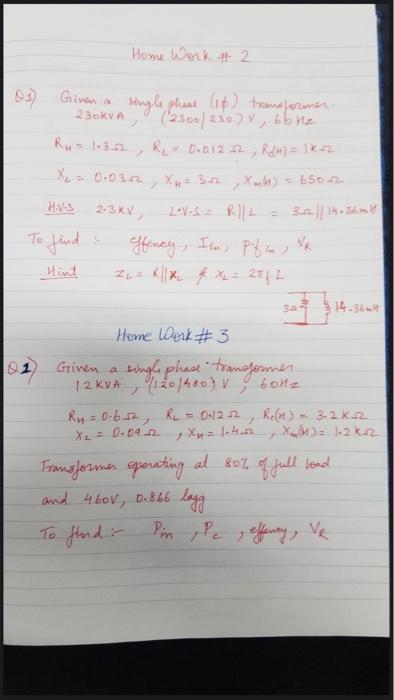 Home Work # 2
Q1) Given a single phase (1ϕ) transformer.
230KVA, (2300/230) V, 60 Hz
RH = 1.3Ω, RL = 0.012 Ω, Rc(H) = 1KΩ
XL = 0.03Ω, XH = 3Ω, Xm(H) = 650Ω
H.V.S 2.3KV, L.V.S = R||L = 3Ω||14.36mH
To find :- effency, Iin, P.f in, VR
Hint ZL = R||XL & XL = 2πfL
3Ω 14.36mH
Home Work # 3
Q1) Given a single phase transformer
12KVA, (120/480) V, 60Hz
RH = 0.6Ω, RL = 0.12Ω, Rc(H) = 3.2KΩ
XL = 0.09Ω, XH = 1.4Ω, Xm(H) = 1.2KΩ
Transformer operating at 80% of full load
and 460V, 0.866 lagg
To find :- Pin, Pc, effency, VR